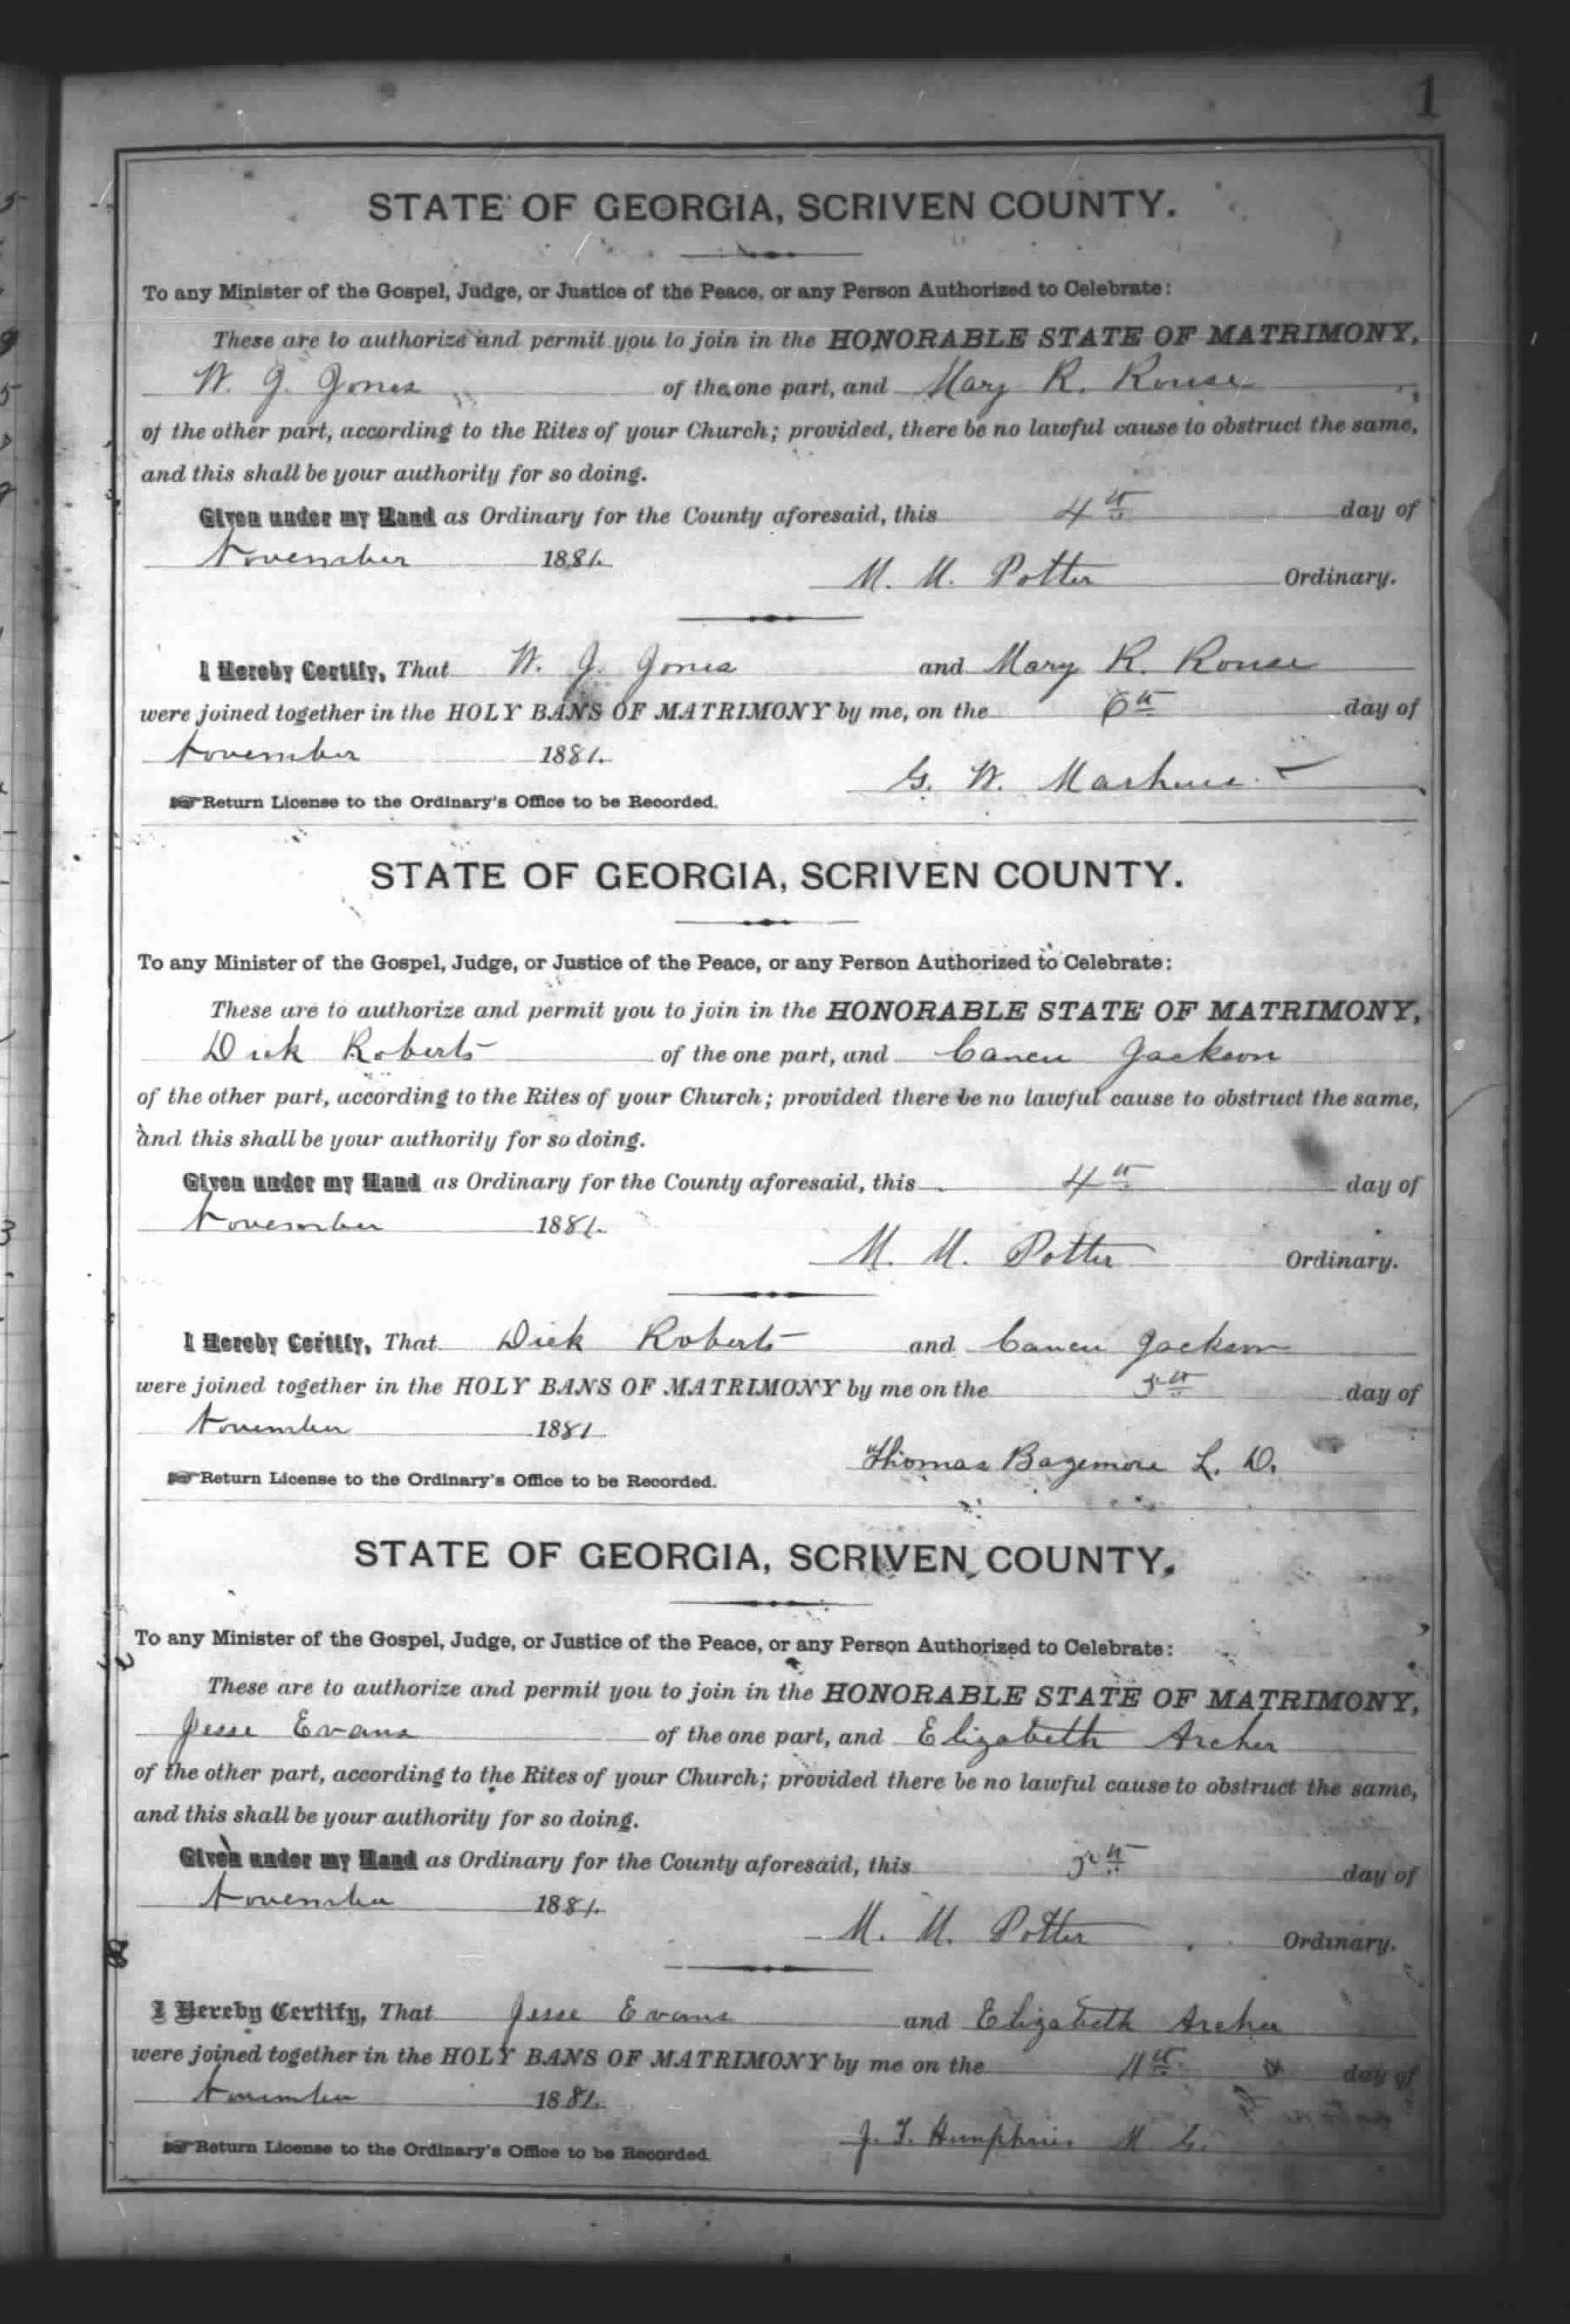 1
STATE OF GEORGIA, SCRIVEN COUNTY.
To any Minister of the Gospel, Judge, or Justice of the Peace, or any Person Authorized to Celebrate:
These are to authorize and permit you to join in the HONORABLE STATE OF MATRIMONY,
W. J. Jones of the one part, and Mary R. Rouse
of the other part, according to the Rites of your Church; provided, there be no lawful cause to obstruct the same,
and this shall be your authority for so doing.
Given under my Hand as Ordinary for the County aforesaid, this 4th day of
November 1881.
M. M. Potter Ordinary.
I Hereby Certify, That W. J. Jones and Mary R. Rouse
were joined together in the HOLY BANS OF MATRIMONY by me, on the 6th day of
November 1881.
G. W.
Return License to the Ordinary's Office to be Recorded.
STATE OF GEORGIA, SCRIVEN COUNTY.
To any Minister of the Gospel, Judge, or Justice of the Peace, or any Person Authorized to Celebrate:
These are to authorize and permit you to join in the HONORABLE STATE OF MATRIMONY,
Dick Roberts of the one part, and Jackson
of the other part, according to the Rites of your Church; provided there be no lawful cause to obstruct the same,
and this shall be your authority for so doing.
Given under my Hand as Ordinary for the County aforesaid, this 4th day of
November 1881.
M. M. Potter Ordinary.
I Hereby Certify, That Dick Roberts and Jackson
were joined together in the HOLY BANS OF MATRIMONY by me on the 5th day of
November 1881
Thomas Bazemore L. D.
Return License to the Ordinary's Office to be Recorded.
STATE OF GEORGIA, SCRIVEN COUNTY.
To any Minister of the Gospel, Judge, or Justice of the Peace, or any Person Authorized to Celebrate:
These are to authorize and permit you to join in the HONORABLE STATE OF MATRIMONY,
Jesse Evans of the one part, and Elizabeth Archer
of the other part, according to the Rites of your Church; provided there be no lawful cause to obstruct the same,
and this shall be your authority for so doing.
Given under my Hand as Ordinary for the County aforesaid, this 5th day of
November 1881.
M. M. Potter Ordinary.
I Hereby Certify, That Jesse Evans and Elizabeth Archer
were joined together in the HOLY BANS OF MATRIMONY by me on the 11th day of
November 1881.
J. T. Humphries M G.
Return License to the Ordinary's Office to be Recorded.